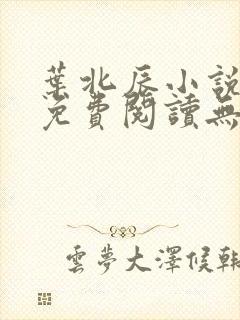 葉北辰小說
免費閱讀無
雲夢大澤候韓